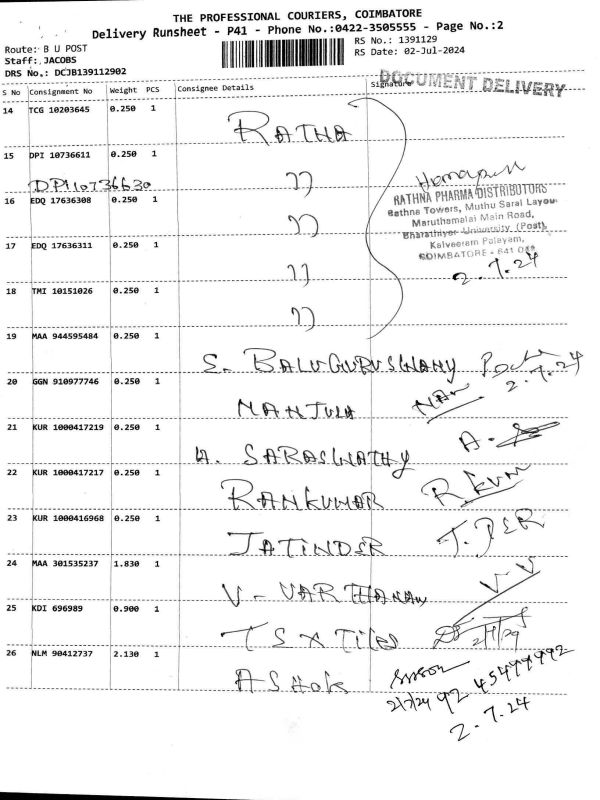 THE PROFESSIONAL COURIERS, COIMBATORE
Delivery Runsheet - P41 - Phone No.:0422-3505555 - Page No.:2
Route: B U POST
RS No.: 1391129
Staff: JACOBS
RS Date: 02-Jul-2024
DRS No.: DCJB139112902
DOCUMENT DELIVERY
S No Consignment No Weight PCS Consignee Details Signature
14 TCG 10203645 0.250 1 RATHA
15 DPI 10736611 0.250 1 "
DPI 10736630
16 EDQ 17636308 0.250 1 "
RATHNA PHARMA DISTRIBUTORS
Rathna Towers, Muthu Sarai Layou
Maruthamalai Main Road,
Bharathiyer University (Post),
Kalveeram Palayam,
COIMBATORE - 641 046
2.7.24
17 EDQ 17636311 0.250 1 "
18 TMI 10151026 0.250 1 "
19 MAA 944595484 0.250 1 S. BALUGURUSWAMY
2.7.24
20 GGN 910977746 0.250 1 MANJULA
21 KUR 1000417219 0.250 1 A. SARASWATHY
22 KUR 1000417217 0.250 1 RAMKUMAR R KUM
23 KUR 1000416968 0.250 1 JATINDER
24 MAA 301535237 1.830 1 V- VARTHANAN V V
25 KDI 696989 0.900 1 T S X Tiles
26 NLM 90412737 2.130 1 AShok
2/7/24
2.7.24